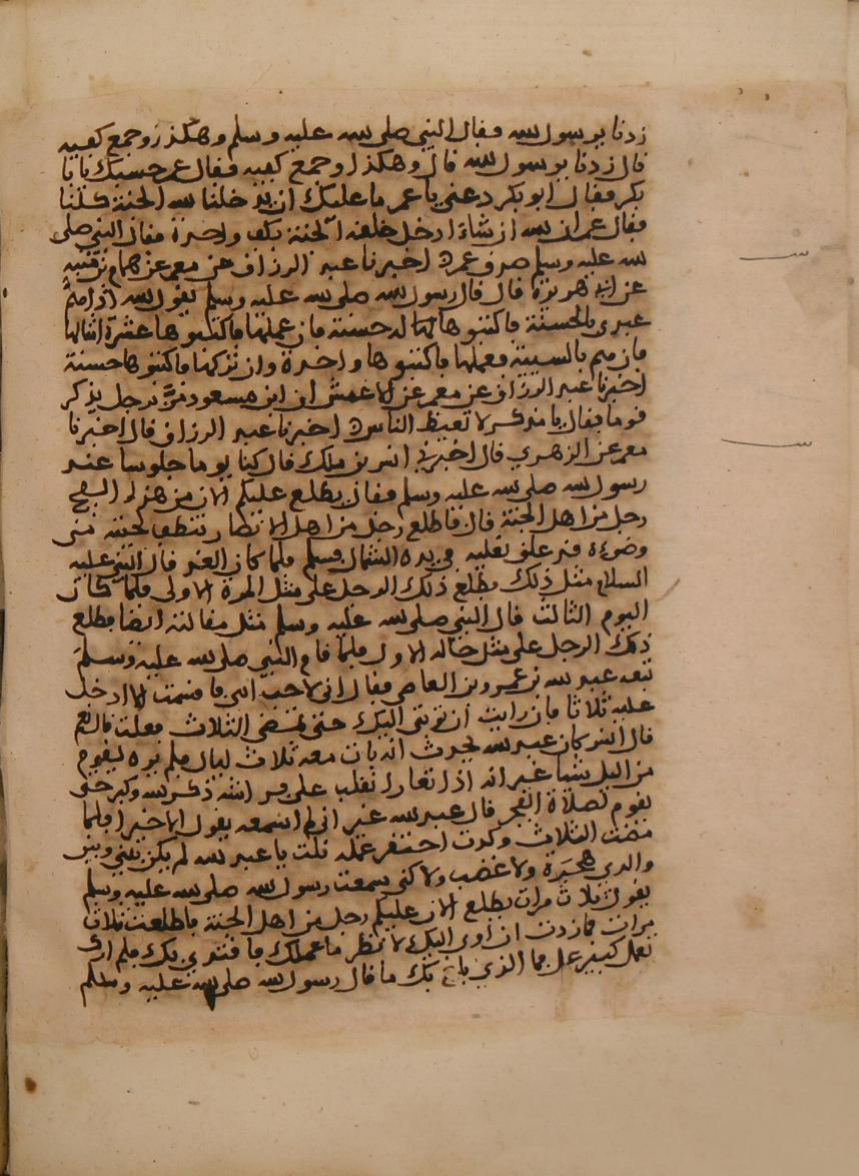 زدنا يرسول الله فقال النبي صلى الله عليه وسلم وهكذا وجمع كفيه
قال زدنا يرسول الله قال وهكذا وجمع كفيه فقال عمر حسبك يا با
بكر فقال ابو بكر دعني يا عمر ما عليك ان يدخلنا الله الجنة كلنا
فقال عمر ان الله ان شاء ادخل خلقه الجنة بكف واحدة فقال النبي صلى
الله عليه وسلم صدق عمر اخبرنا عبد الرزاق عن معمر عن همام بن منبه
عن ابي هريرة قال قال رسول الله صلى الله عليه وسلم يقول الله اذا هم
عبدي بالحسنة فاكتبوها له حسنة فان عملها فاكتبوها عشرة امثالها
فان هم بالسيية فعملها فاكتبوها واحدة وان تركها فاكتبوها حسنة
اخبرنا عبد الرزاق عن معمر عن الاعمش ان ابن مسعود مر برجل يذكر
قوما فقال يا مذكر لا تقنط الناس اخبرنا عبد الرزاق قال اخبرنا
معمر عن الزهري قال اخبرني انس بن ملك قال كنا يوما جلوسا عند
رسول الله صلى الله عليه وسلم فقال يطلع عليكم الان من هذا الفج
رجل من اهل الجنة قال فاطلع رجل من اهل الانصار تنطف لحيته من
وضوءه قد علق نعليه في يده الشمال فسلم فلما كان الغد قال النبي عليه
السلام مثل ذلك فطلع ذلك الرجل على مثل المرة الاولى فلما كان
اليوم الثالث قال النبي صلى الله عليه وسلم مثل مقالته ايضا فطلع
ذلك الرجل على مثل حاله الاول فلما قام النبي صلى الله عليه وسلم
تبعه عبد الله بن عمرو بن العاص فقال اني لاحيت ابي فاقسمت الا ادخل
عليه ثلاثا فان رايت ان تويني اليك حتى تمضي الثلاث فعلت قال نعم
قال انس كان عبد الله يحدث انه بات معه ثلاث ليال فلم يره يقوم
من اليل شيا غير انه اذا تعار انقلب على فراشه ذكر الله وكبر حتى
يقوم لصلاة الفجر قال عبد الله غير اني لم اسمعه يقول الا خيرا فلما
مضت الثلاث وكدت احتقر عمله قلت يا عبد الله لم يكن بيني وبين
والدي هجرة ولا غضب ولاكني سمعت رسول الله صلى الله عليه وسلم
يقول ثلاث مرات يطلع الان عليكم رجل من اهل الجنة فاطلعت ثلاث
مرات فاردت ان اوي اليك لانظر ما عملك فاقتدي بك فلم ارك
تعمل كبير عمل فما الذي بلغ بك ما قال رسول الله صلى الله عليه وسلم